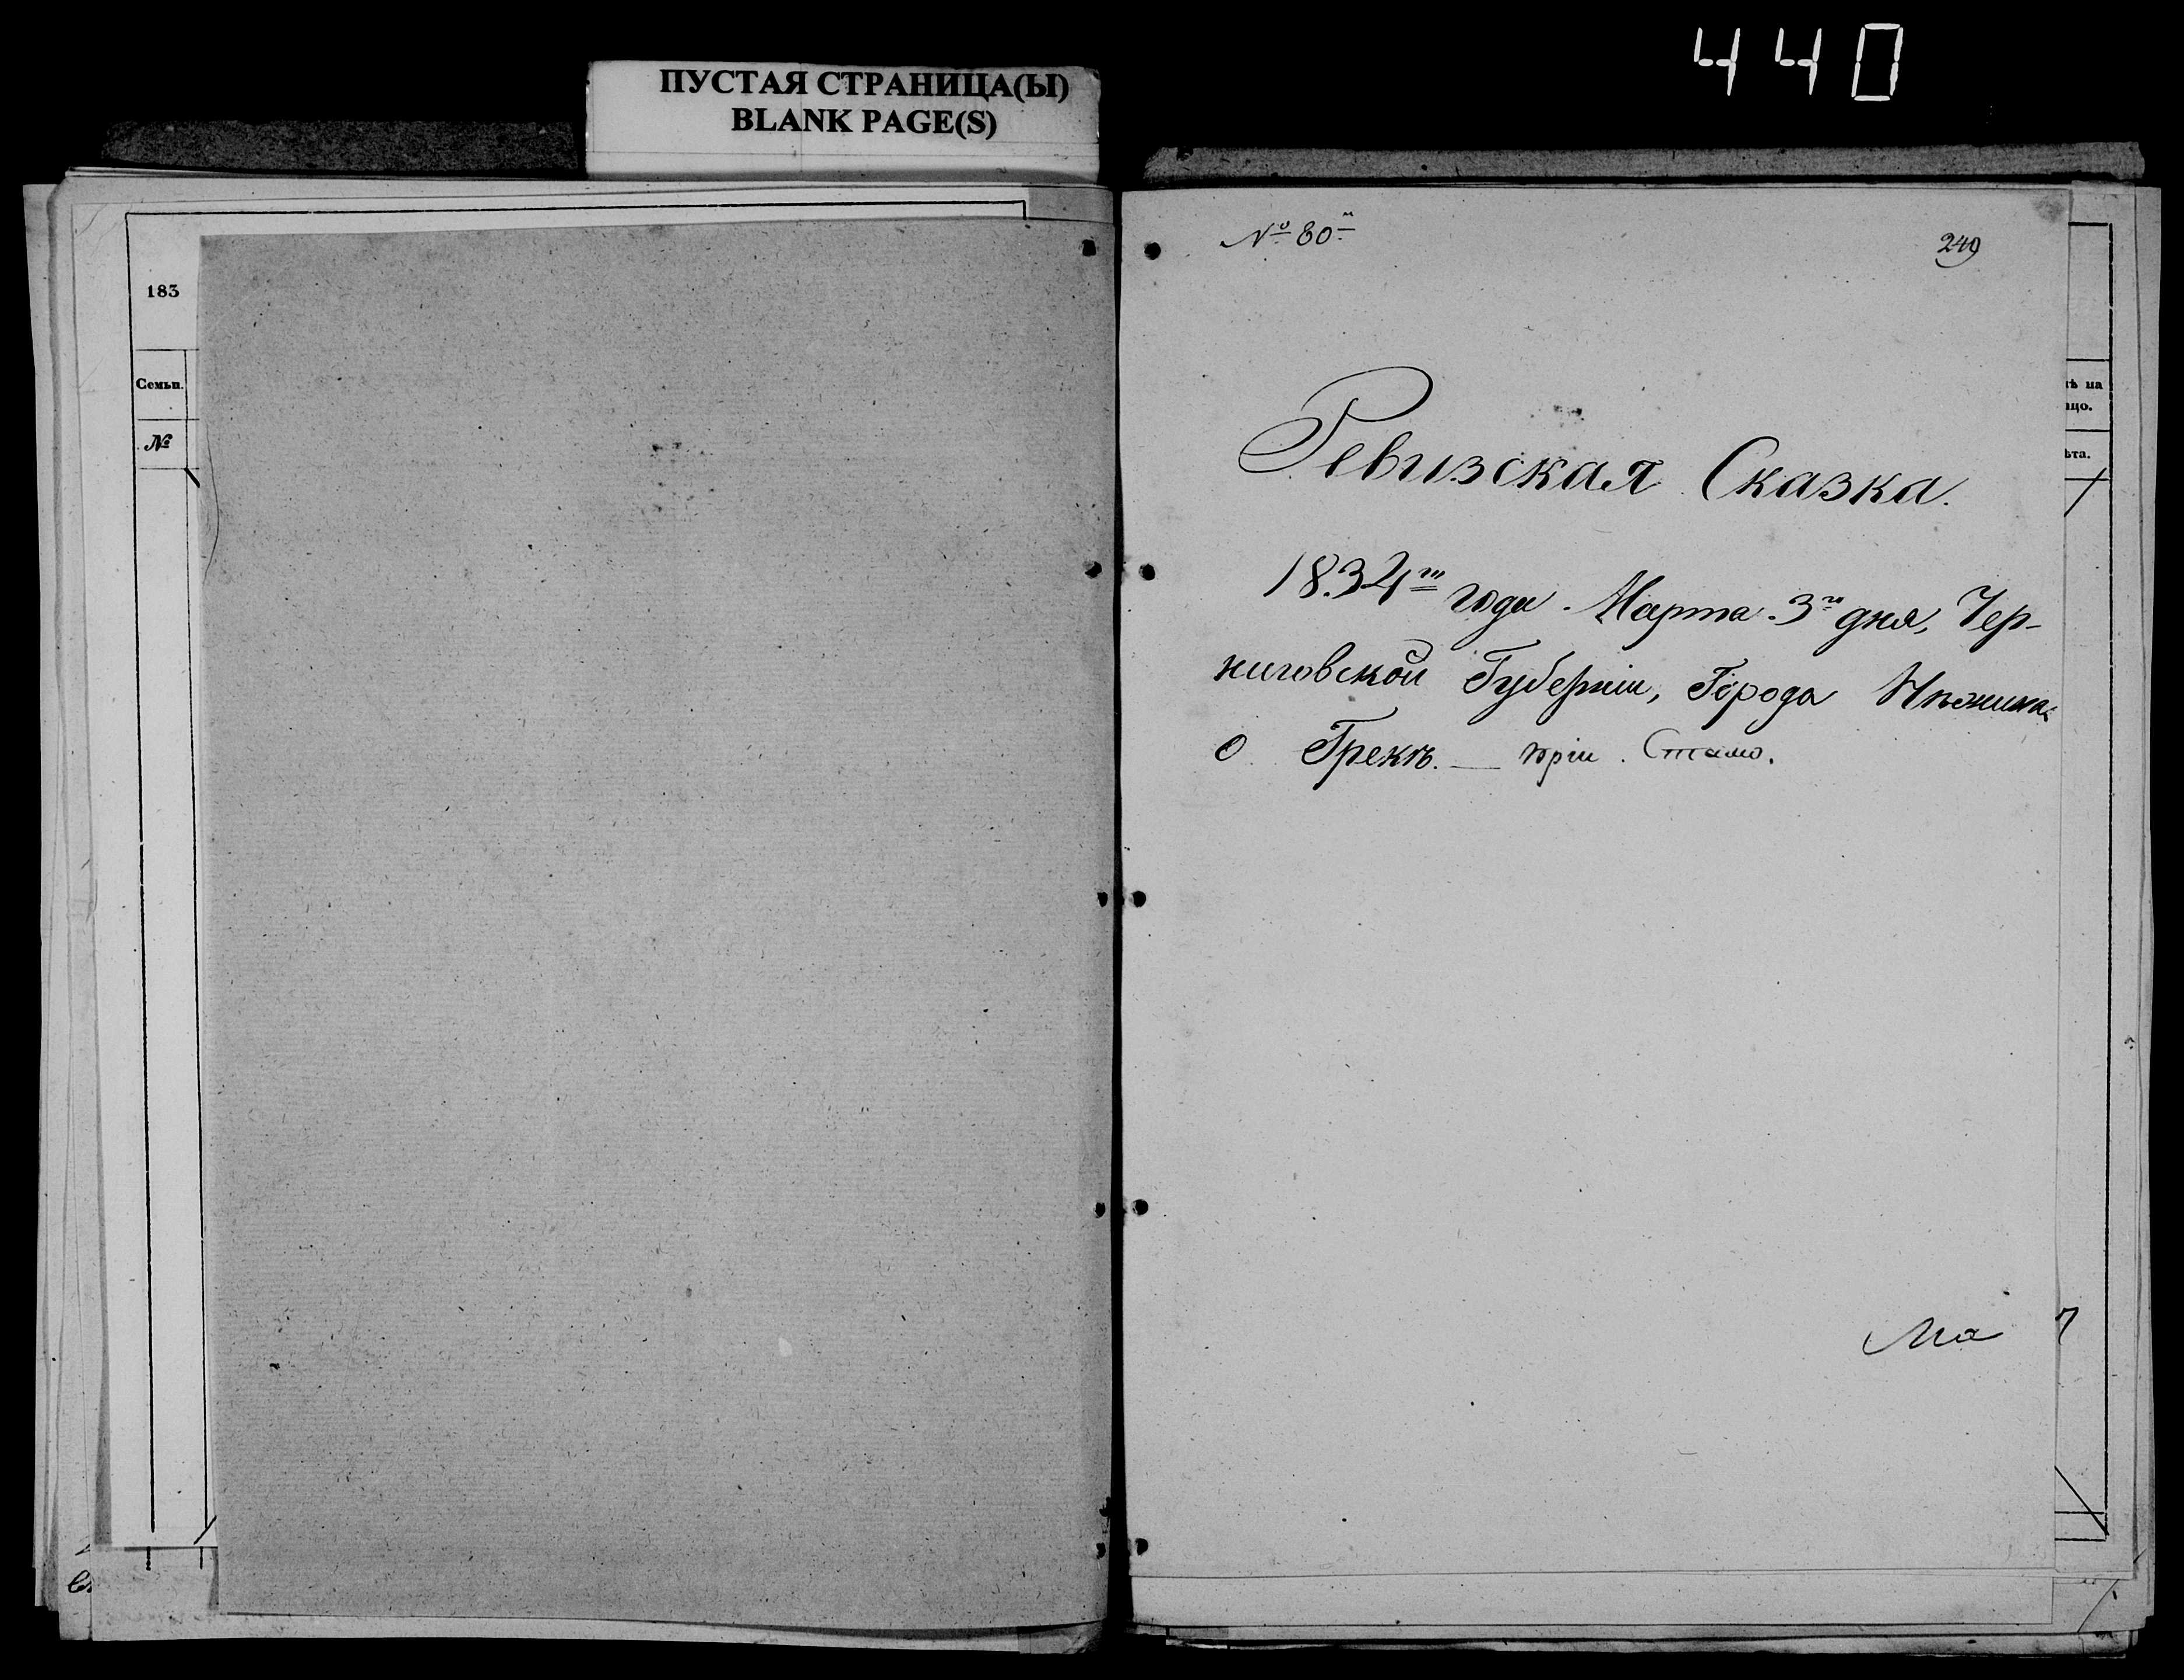 440
ПУСТАЯ СТРАНИЦА(Ы)
BLANK PAGE(S)
183
Семьи.
№
№ 80й
249
Ревизская Сказка.
1834го года Марта 3го дня, Чер-
ниговской Губерніи, Города Нѣжина
О Грекѣ. — Стамо.
ѣ на
цо.
ѣта.